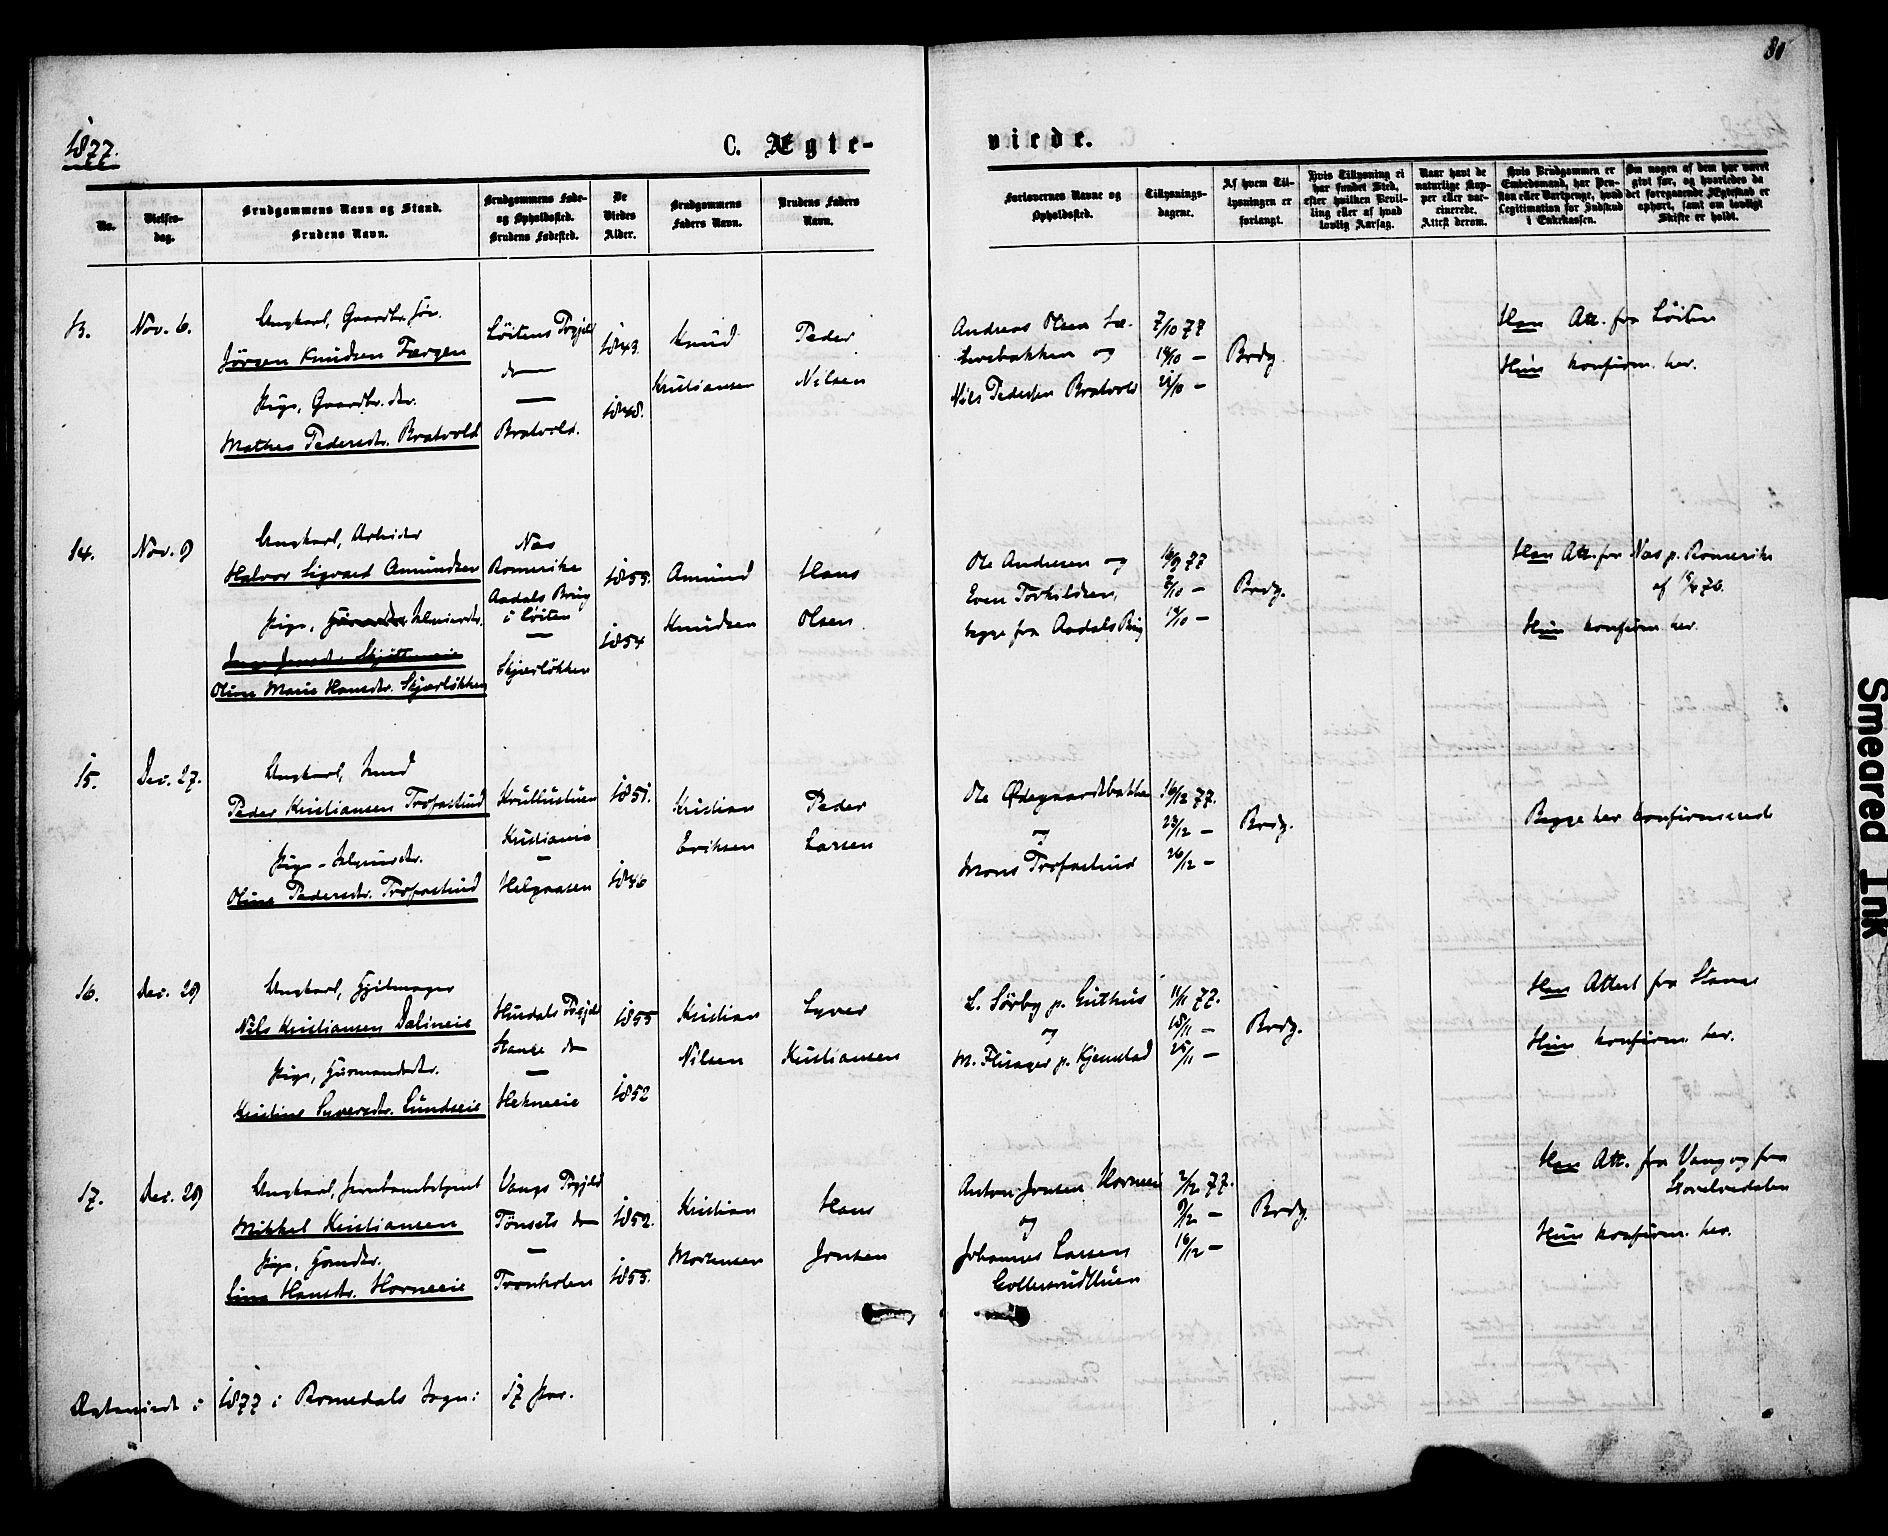 80
1877.
C. Ægte-
viede.
No.
Vielses-
dag.
Brudgommens Navn og Stand.
Brudens Navn.
Brudgommens Føde-
og Opholdssted.
Brudens Fødested.
De
Viedes
Alder.
Brudgommens
Faders Navn.
Brudens Faders
Navn.
Forlovernes Navne og
Opholdssted.
Tillysnings-
dagene.
Af hvem Til-
lysningen er
forlangt.
Hvis Tillysning ei
har fundet Sted,
efter hvilken Bevil-
ling eller af hvad
lovlig Aarsag.
Naar havt de
naturlige Kop-
per eller vac-
cinerede.
Attest derom.
Hvis Brudgommen er
Embedsmand, har Pen-
sion eller Vartpenge, hvad
Legitimation for Indskud
i Enkekassen.
Om nogen af dem har været
givt før, og hvorledes da
det foregaaende Ægteskab er
ophørt, samt om lovligt
Skifte er holdt.
13.
Nov. 6.
Ungkarl, Gaardbr. Søn.
Jörgen Knudsen Færgen
Pige, Gaardbr. dtr.
Mathea Pedersdtr. Bratvold
Löitens Prgjld
do
Bratvold.
1843.
1848.
Knud
Kristiansen
Peder
Nilsen
Andreas Olsen
og
Nils Pedersen Bratvold
7/10 77
14/10 —
21/10 —
Brdg.
Han Att. fra Löiten
Hun konfirm. her.
14.
Nov. 9
Ungkarl, Arbeider
Halvor Sigvard Amundsen
Pige, Husmdtr.
Oline Marie Hansdtr. Skjærlökken
Næs
Romerike
Aadals Brug
i Löiten
Skjærlökken
1855.
1854
Amund
Knudsen
Hans
Olsen
Ole Andersen og
Even Torkildsen,
begge fra Aadals Brug
16/9 77
7/10 —
14/10 —
Brdg.
Han Att. fra Næs p. Romerike
af 15/4 76.
Hun konfirm. her.
15.
Dec. 27.
Ungkarl, Smed
Peder Kristiansen Trofastlund
Pige
Oline Pedersdtr. Trofastlund
Krullustuen
Kristiania
Helgaasen
1851.
1846
Kristian
Eriksen
Peder
Larsen
Ole Ödegaardsbakken
og
Mons Trofastlund
16/12 77.
23/12 —
26/12 —
Brdg.
Begge her konfirmerede
16.
Dec. 29
Ungkarl, Hjulmager
Nils Kristiansen Dalineie
Pige, Husmandsdtr.
Kristine Syversdtr. Lundseie
Hurdals Prgjld
Stange do
Hekneeie
1855
1852
Kristian
Nilsen
Syver
Kristiansen
L. Sörby p. Guthus
og
M. Flisager p. Kjemstad
11/11 77.
18/11 —
25/11 —
Brdg.
Han Attest fra Stange
Hun konfirm. her.
17.
Dec. 29
Ungkarl, Jernbanebetjent
Mikkel Kristiansen
Pige, Husmdtr.
Lina Hansdtr. Horneeie
Vangs Prgjld
Tönsets do
Tronholen
1852.
1855.
Kristian
Mortensen
Hans
Jonsen
Anton Jonsen Horneeie
og
Johannes Larsen
Gollerudstuen
2/12 77.
9/12 —
16/12 —
Brdg.
Han Att. fra Vang og fra
Storelvedalen
Hun konfirm. her.
Ægteviede i 1877 i Romedals Sogn: 17 Par.
Smeared Ink